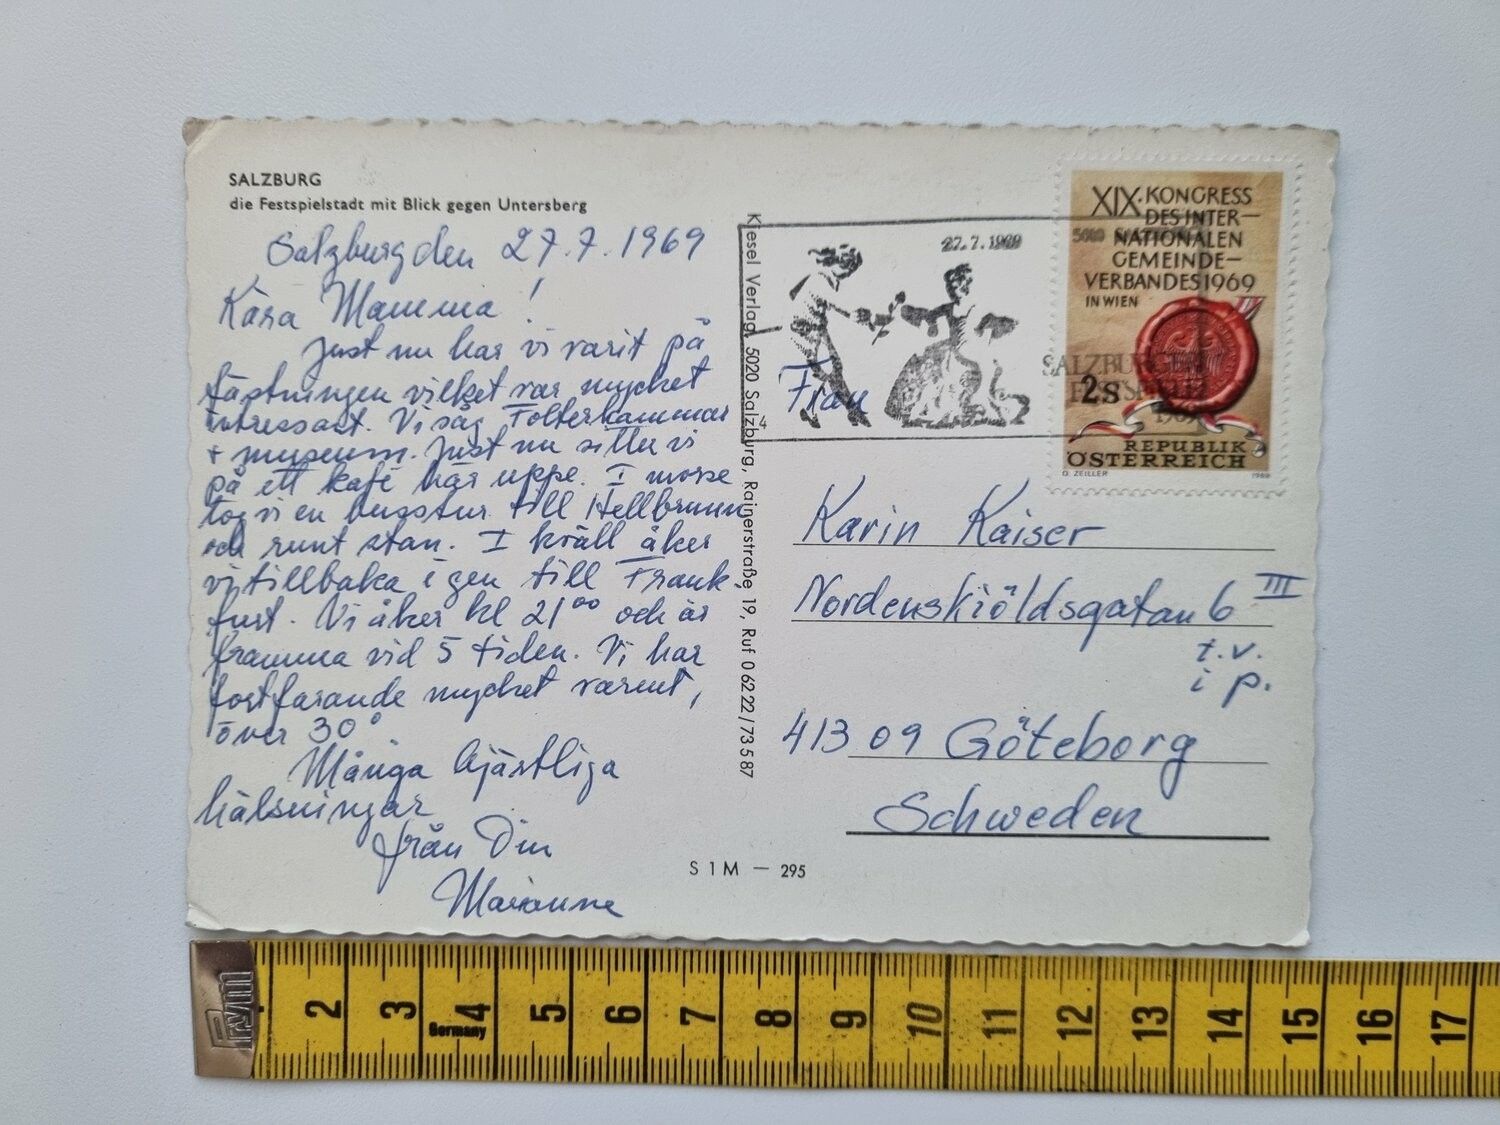 SALZBURG
die Festspielstadt mit Blick gegen Untersberg
Salzburg den 27.7.1969
Kära Mamma!
Just nu har vi varit på
fästningen vilket var mycket
intressant. Vi såg Folterkammar
+ museum. Just nu sitter vi
på ett kafé här uppe. I morse
tog vi en busstur till Hellbrunn
och runt stan. I kväll åker
vi tillbaka igen till Frank-
furt. Vi åker kl 21⁰⁰ och är
framma vid 5 tiden. Vi har
fortfarande mycket varmt,
över 30°
Många hjärtliga
hälsningar
från Din
Marianne
Kiesel Verlag, 5020 Salzburg, Rainerstraße 19, Ruf 0 62 22 / 73 5 87
S 1 M — 295
27.7.1969
5020
SALZBURGER
FESTSPIELE
1969
XIX. KONGRESS
DES INTER-
NATIONALEN
GEMEINDE-
VERBANDES 1969
IN WIEN
2S
REPUBLIK
ÖSTERREICH
O. ZEILLER 1969
Frau
Karin Kaiser
Nordenskiöldsgatan 6 III
t.v.
i p.
413 09 Göteborg
Schweden
Prym
Germany
2 3 4 5 6 7 8 9 10 11 12 13 14 15 16 17